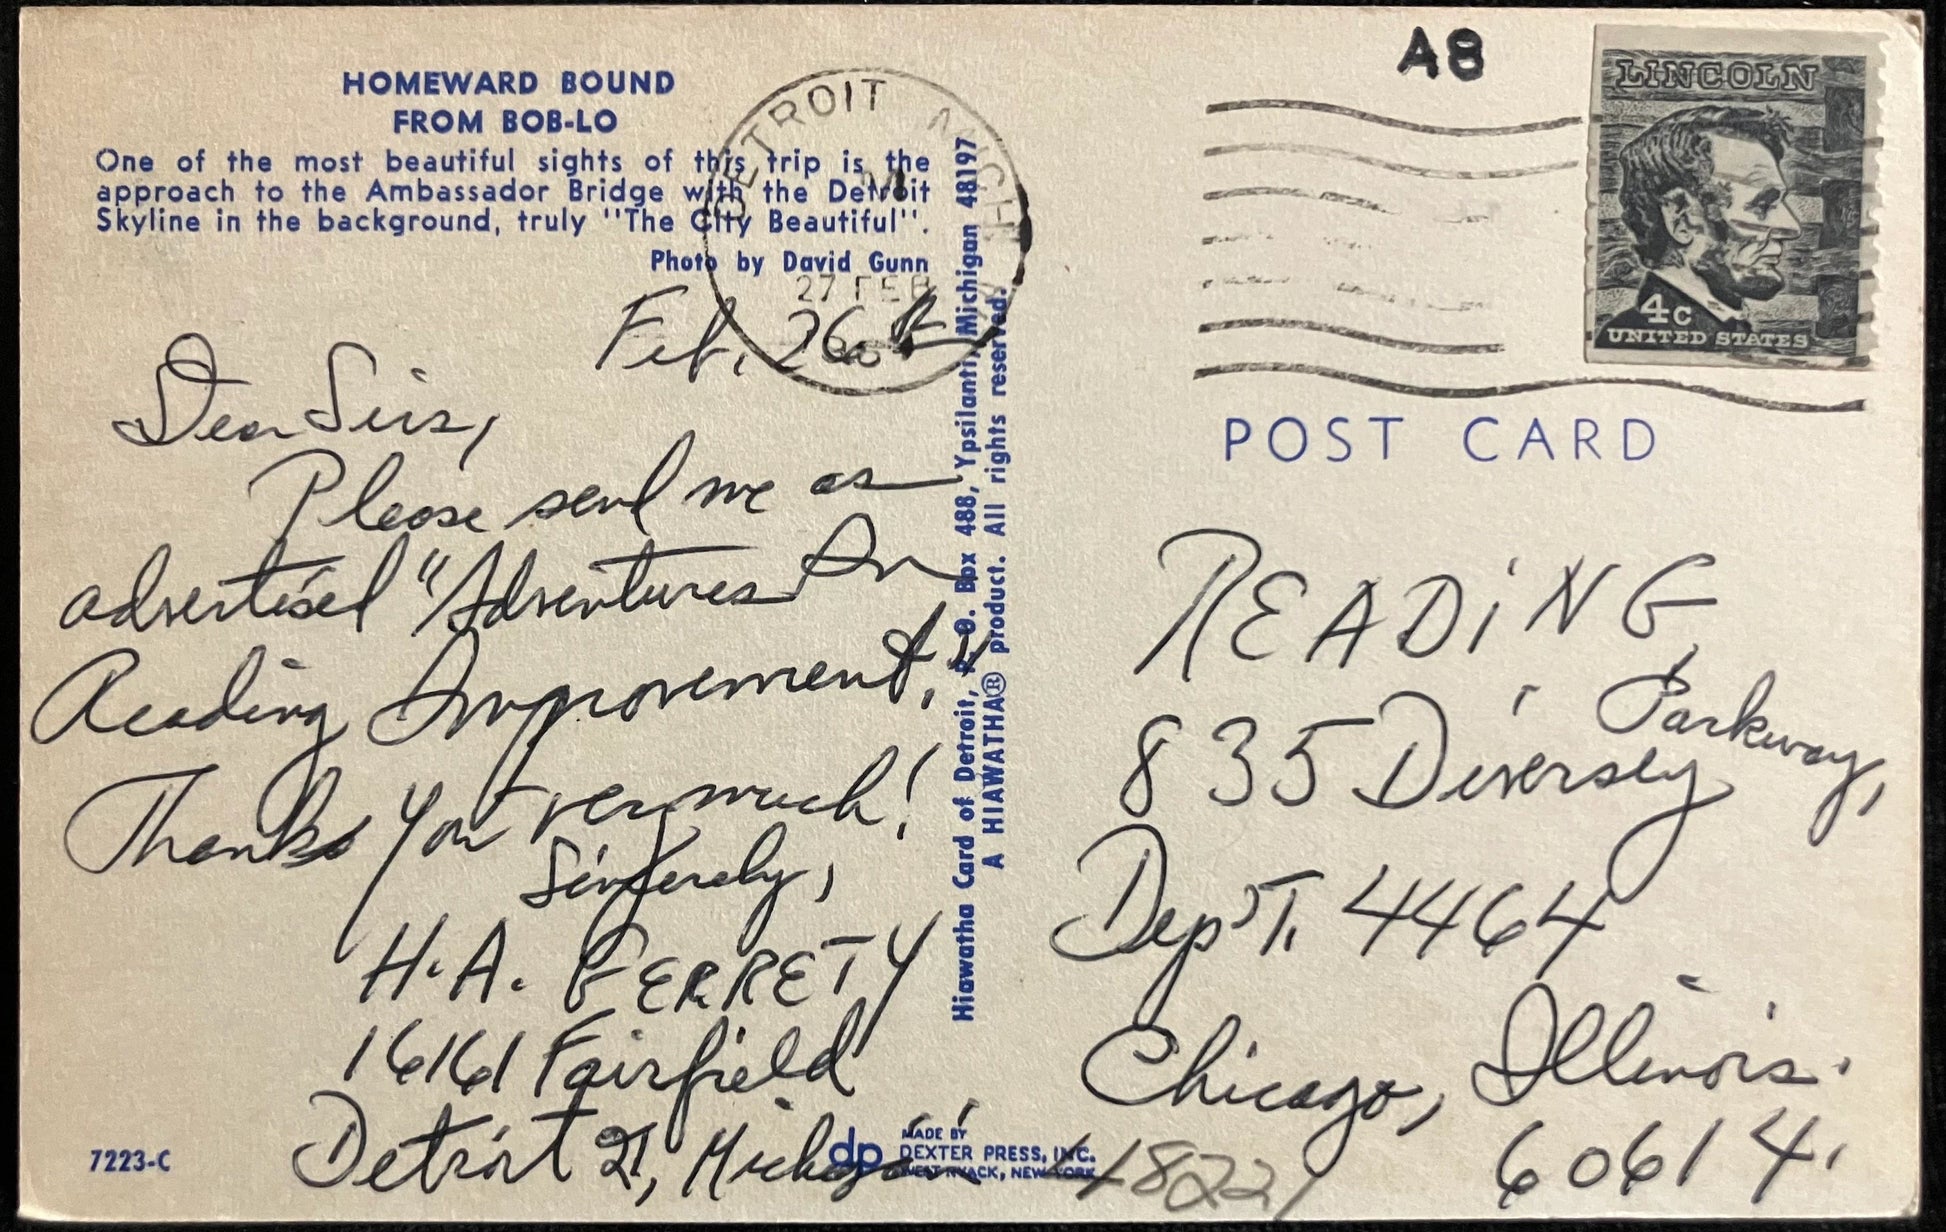 HOMEWARD BOUND
FROM BOB-LO
One of the most beautiful sights of this trip is the
approach to the Ambassador Bridge with the Detroit
Skyline in the background, truly "The City Beautiful".
Photo by David Gunn
Feb. 26th
Dear Sirs,
Please send me as
advertised "Adventures In
Reading Improvement."
Thanks You very much!
Sincerely,
H.A. GERRETY
16161 Fairfield
Detroit 21, Michigan
7223-C
dp
MADE BY
DEXTER PRESS, INC.
WEST NYACK, NEW YORK
48221
Hiawatha Card of Detroit, P. O. Box 488, Ypsilanti, Michigan 48197
A HIAWATHA® product. All rights reserved.
DETROIT MICH
27 FEB
A8
LINCOLN
4c
UNITED STATES
POST CARD
READING
835 Diversey Parkway,
Dep'T. 4464
Chicago, Illinois.
60614.